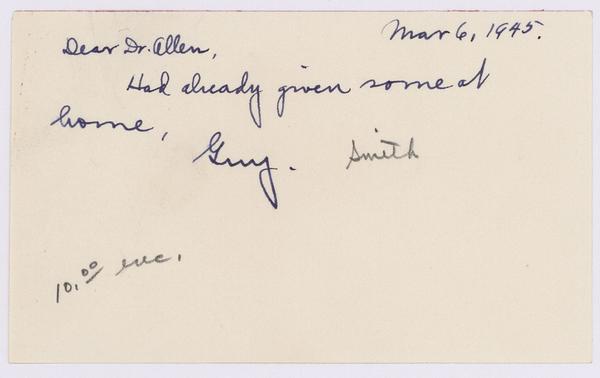 Mar 6, 1945.
Dear Dr. Allen,
Had already given some at
home,
Guy. Smith
10.00 enc.